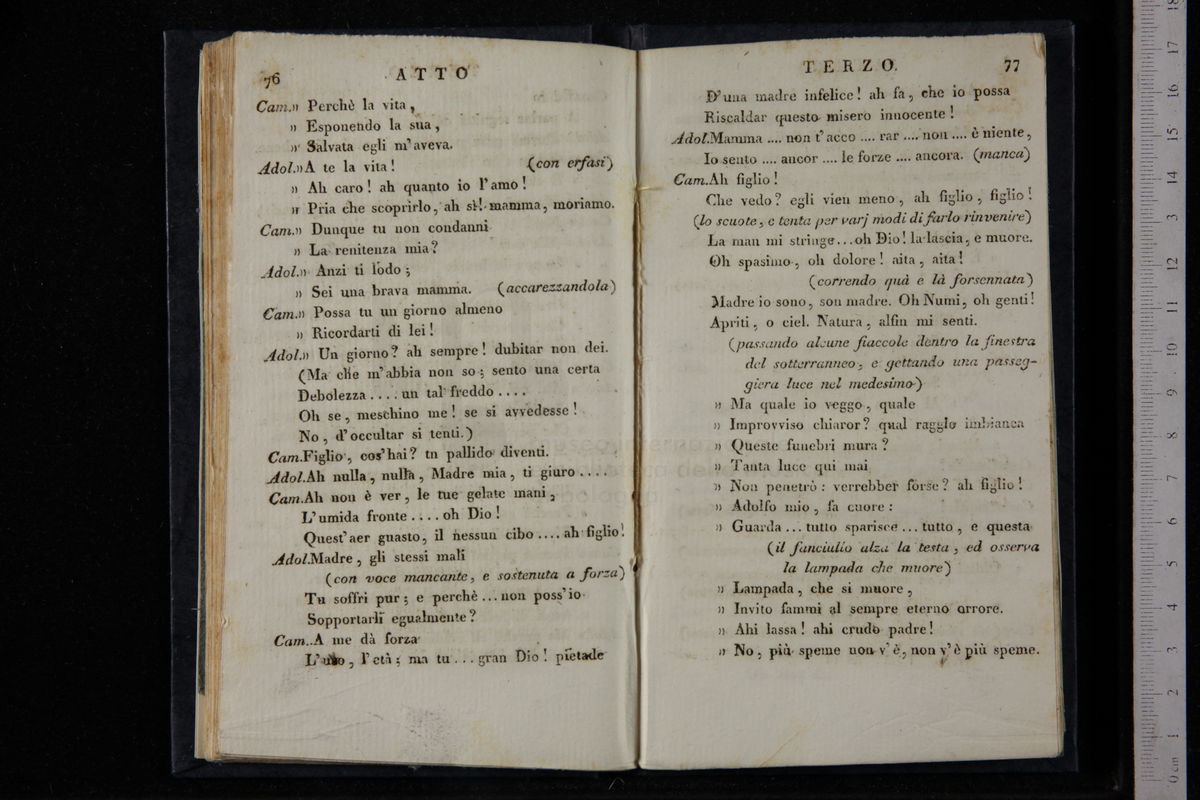 76 ATTO
Cam.» Perchè la vita,
» Esponendo la sua,
» Salvata egli m'aveva.
Adol.» A te la vita! (con erfasi)
» Ah caro! ah quanto io l'amo!
» Pria che scoprirlo, ah sì! mamma, moriamo.
Cam.» Dunque tu non condanni
» La renitenza mia?
Adol.» Anzi ti lodo;
» Sei una brava mamma. (accarezzandola)
Cam.» Possa tu un giorno almeno
» Ricordarti di lei!
Adol.» Un giorno? ah sempre! dubitar non dei.
(Ma che m'abbia non so; sento una certa
Debolezza .... un tal freddo ....
Oh se, meschino me! se si avvedesse!
No, d'occultar si tenti.)
Cam.Figlio, cos'hai? tn pallido diventi.
Adol.Ah nulla, nulla, Madre mia, ti giuro ....
Cam.Ah non è ver, le tue gelate mani,
L'umida fronte .... oh Dio!
Quest'aer guasto, il nessun cibo .... ah figlio!
Adol.Madre, gli stessi mali
(con voce mancante, e sostenuta a forza)
Tu soffri pur; e perchè ... non poss'io
Sopportarli egualmente?
Cam..A me dà forza
L'uso, l'età; ma tu ... gran Dio! pietade
TERZO. 77
D'una madre infelice! ah fa, che io possa
Riscaldar questo misero innocente!
Adol.Mamma .... non t'acco .... rar .... non .... è niente,
Io sento .... ancor .... le forze .... ancora. (manca)
Cam.Ah figlio!
Che vedo? egli vien meno, ah figlio, figlio!
(lo scuote, e tenta per varj modi di farlo rinvenire)
La man mi stringe...oh Dio! la lascia, e muore.
Oh spasimo, oh dolore! aita, aita!
(correndo quà e là forsennata)
Madre io sono, son madre. Oh Numi, oh genti!
Apriti, o ciel. Natura, alfin mi senti.
(passando alcune fiaccole dentro la finestra
del sotterranneo, e gettando una passeg-
giera luce nel medesimo)
» Ma quale io veggo, quale
» Improvviso chiaror? qual raggio imbianca
» Queste funebri mura?
» Tanta luce qui mai
» Non penetrò: verrebber forse? ah figlio!
» Adolfo mio, fa cuore:
» Guarda ... tutto sparisce ... tutto, e questa
(il fanciullo alza la testa, ed osserva
la lampada che muore)
» Lampada, che si muore,
» Invito fammi al sempre eterno orrore.
» Ahi lassa! ahi crudo padre!
» No, più speme non v'è, non v'è più speme.
0 cm 1 2 3 4 5 6 7 8 9 10 11 12 13 14 15 16 17 18